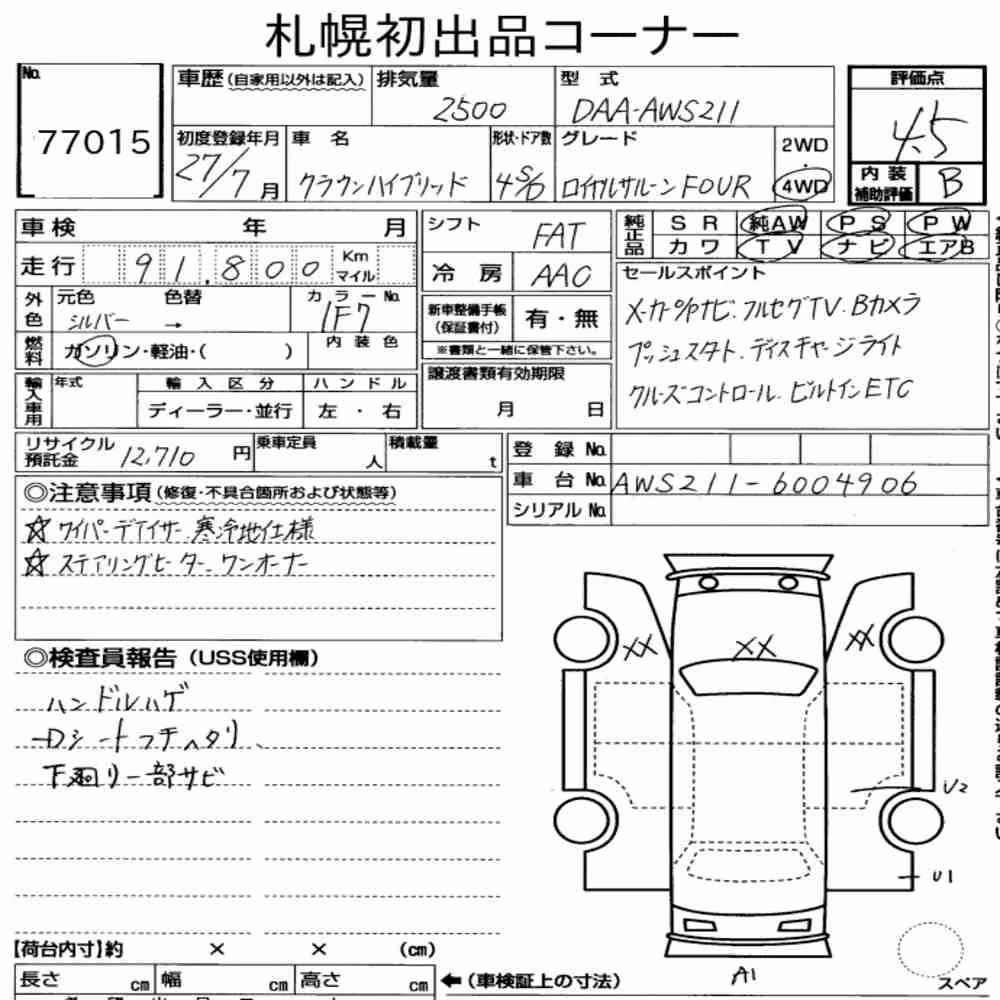 札幌初出品コーナー
No. 77015
車歴(自家用以外は記入)
排気量 2500
型 式 DAA-AWS211
評価点 4.5
初度登録年月 27/7月
車 名 クラウンハイブリッド
形状・ドア数 4 S/D
グレード ロイヤルサルーンFOUR
2WD
・
4WD
内 装 補助評価 B
車検 年 月
シフト FAT
純正品 SR 純AW PS PW
カワ TV ナビ エアB
走行 91,800 Km マイル
冷 房 AAC
セールスポイント
メーカーSDナビ.フルセグTV.Bカメラ
プッシュスタート.ディスチャージライト
クルーズコントロール.ビルトインETC
外色 元色 シルバー → 色替
カラーNo. 1F7
新車整備手帳(保証書付) 有・無
※書類と一緒に保管下さい。
燃料 ガソリン・軽油・( )
内 装 色
輸入車用 年式 輸 入 区 分 ハ ン ド ル
ディーラー・並行 左 ・ 右
譲渡書類有効期限
月 日
リサイクル預託金 12,710 円
乗車定員 人
積載量 t
登 録 No.
車 台 No. AWS211-6004906
シリアル No.
◎注意事項(修復・不具合箇所および状態等)
☆ワイパーデアイサー.寒冷地仕様
☆ステアリングヒーター.ワンオーナー
◎検査員報告(USS使用欄)
ハンドルハゲ
Dシートフチヘタリ、
下廻り一部サビ
XX XX XX
U2
U1
A1
スペア
【荷台内寸】約 × × (cm)
長さ cm 幅 cm 高さ cm
←(車検証上の寸法)